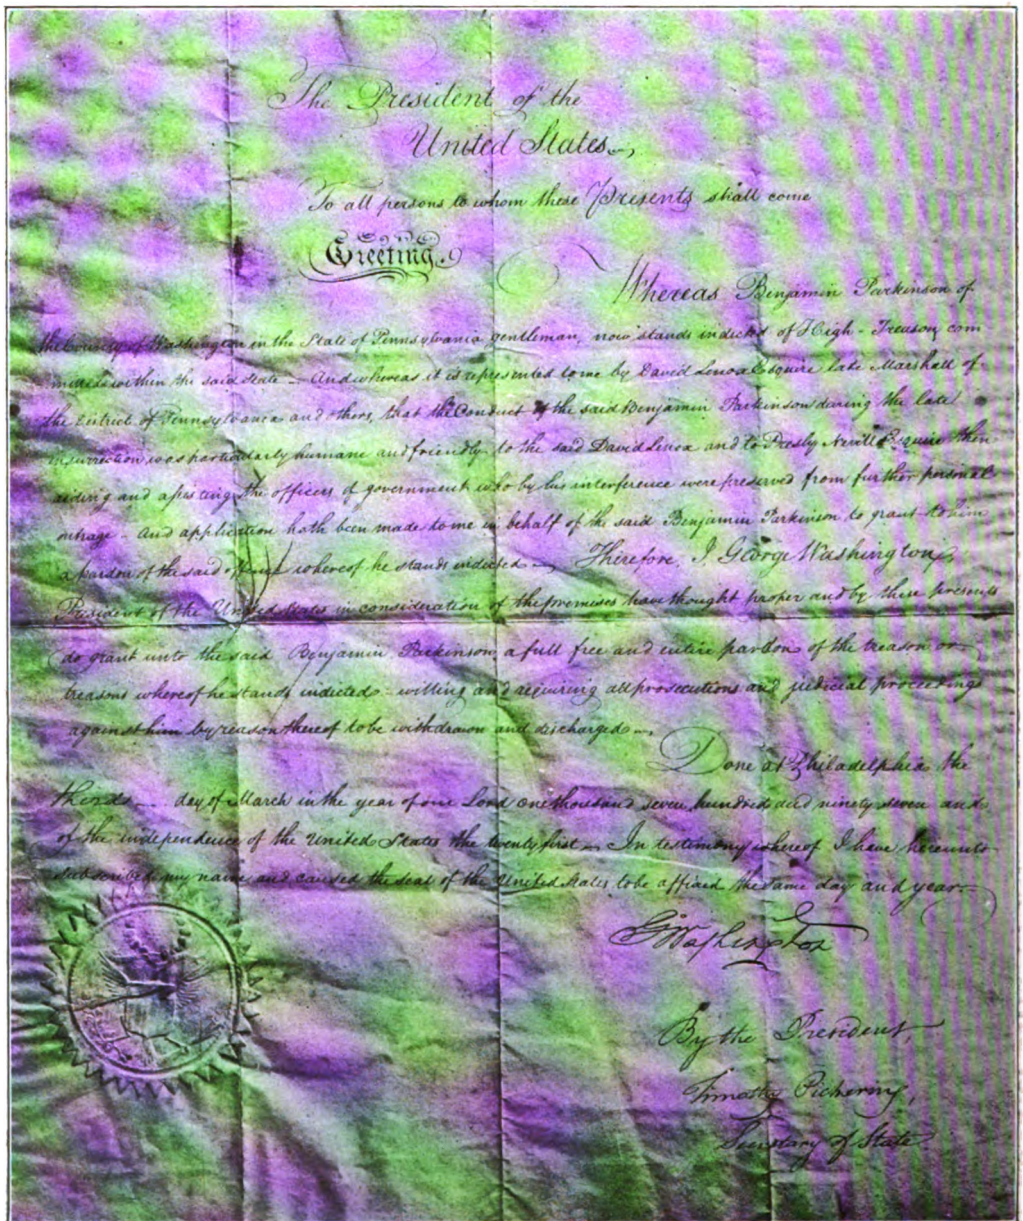 The President of the
United States
To all persons to whom these Presents shall come
Greeting.
Whereas Benjamin Parkinson of
the County of Washington in the State of Pennsylvania gentleman, now stands indicted of High-Treason com
mitted within the said State – And whereas it is represented to me by David Lenox Esquire late Marshall of
the district of Pennsylvania and others, that the Conduct of the said Benjamin Parkinson during the late
insurrection was particularly humane and friendly to the said David Lenox and to Presly Nevill Esquire then
aiding and assisting the officers of government who by his interference were preserved from further personal
outrage – And application hath been made to me in behalf of the said Benjamin Parkinson, to grant to him
a pardon of the said offence whereof he stands indicted – Therefore, I George Washington,
President of the United States in consideration of the premises have thought proper and by these presents
do grant unto the said Benjamin Parkinson, a full free and entire pardon of the treason or
treasons whereof he stands indicted – willing and requiring all prosecutions and judicial proceedings
against him by reason thereof to be withdrawn and discharged –
Done at Philadelphia the
third – day of March in the year of our Lord one thousand seven hundred and ninety seven and
of the independence of the United States the twenty first – In testimony whereof I have hereunto
subscribed my name and caused the seal of the United States to be affixed the same day and year –
G. Washington
By the President,
Timothy Pickering,
Secretary of State